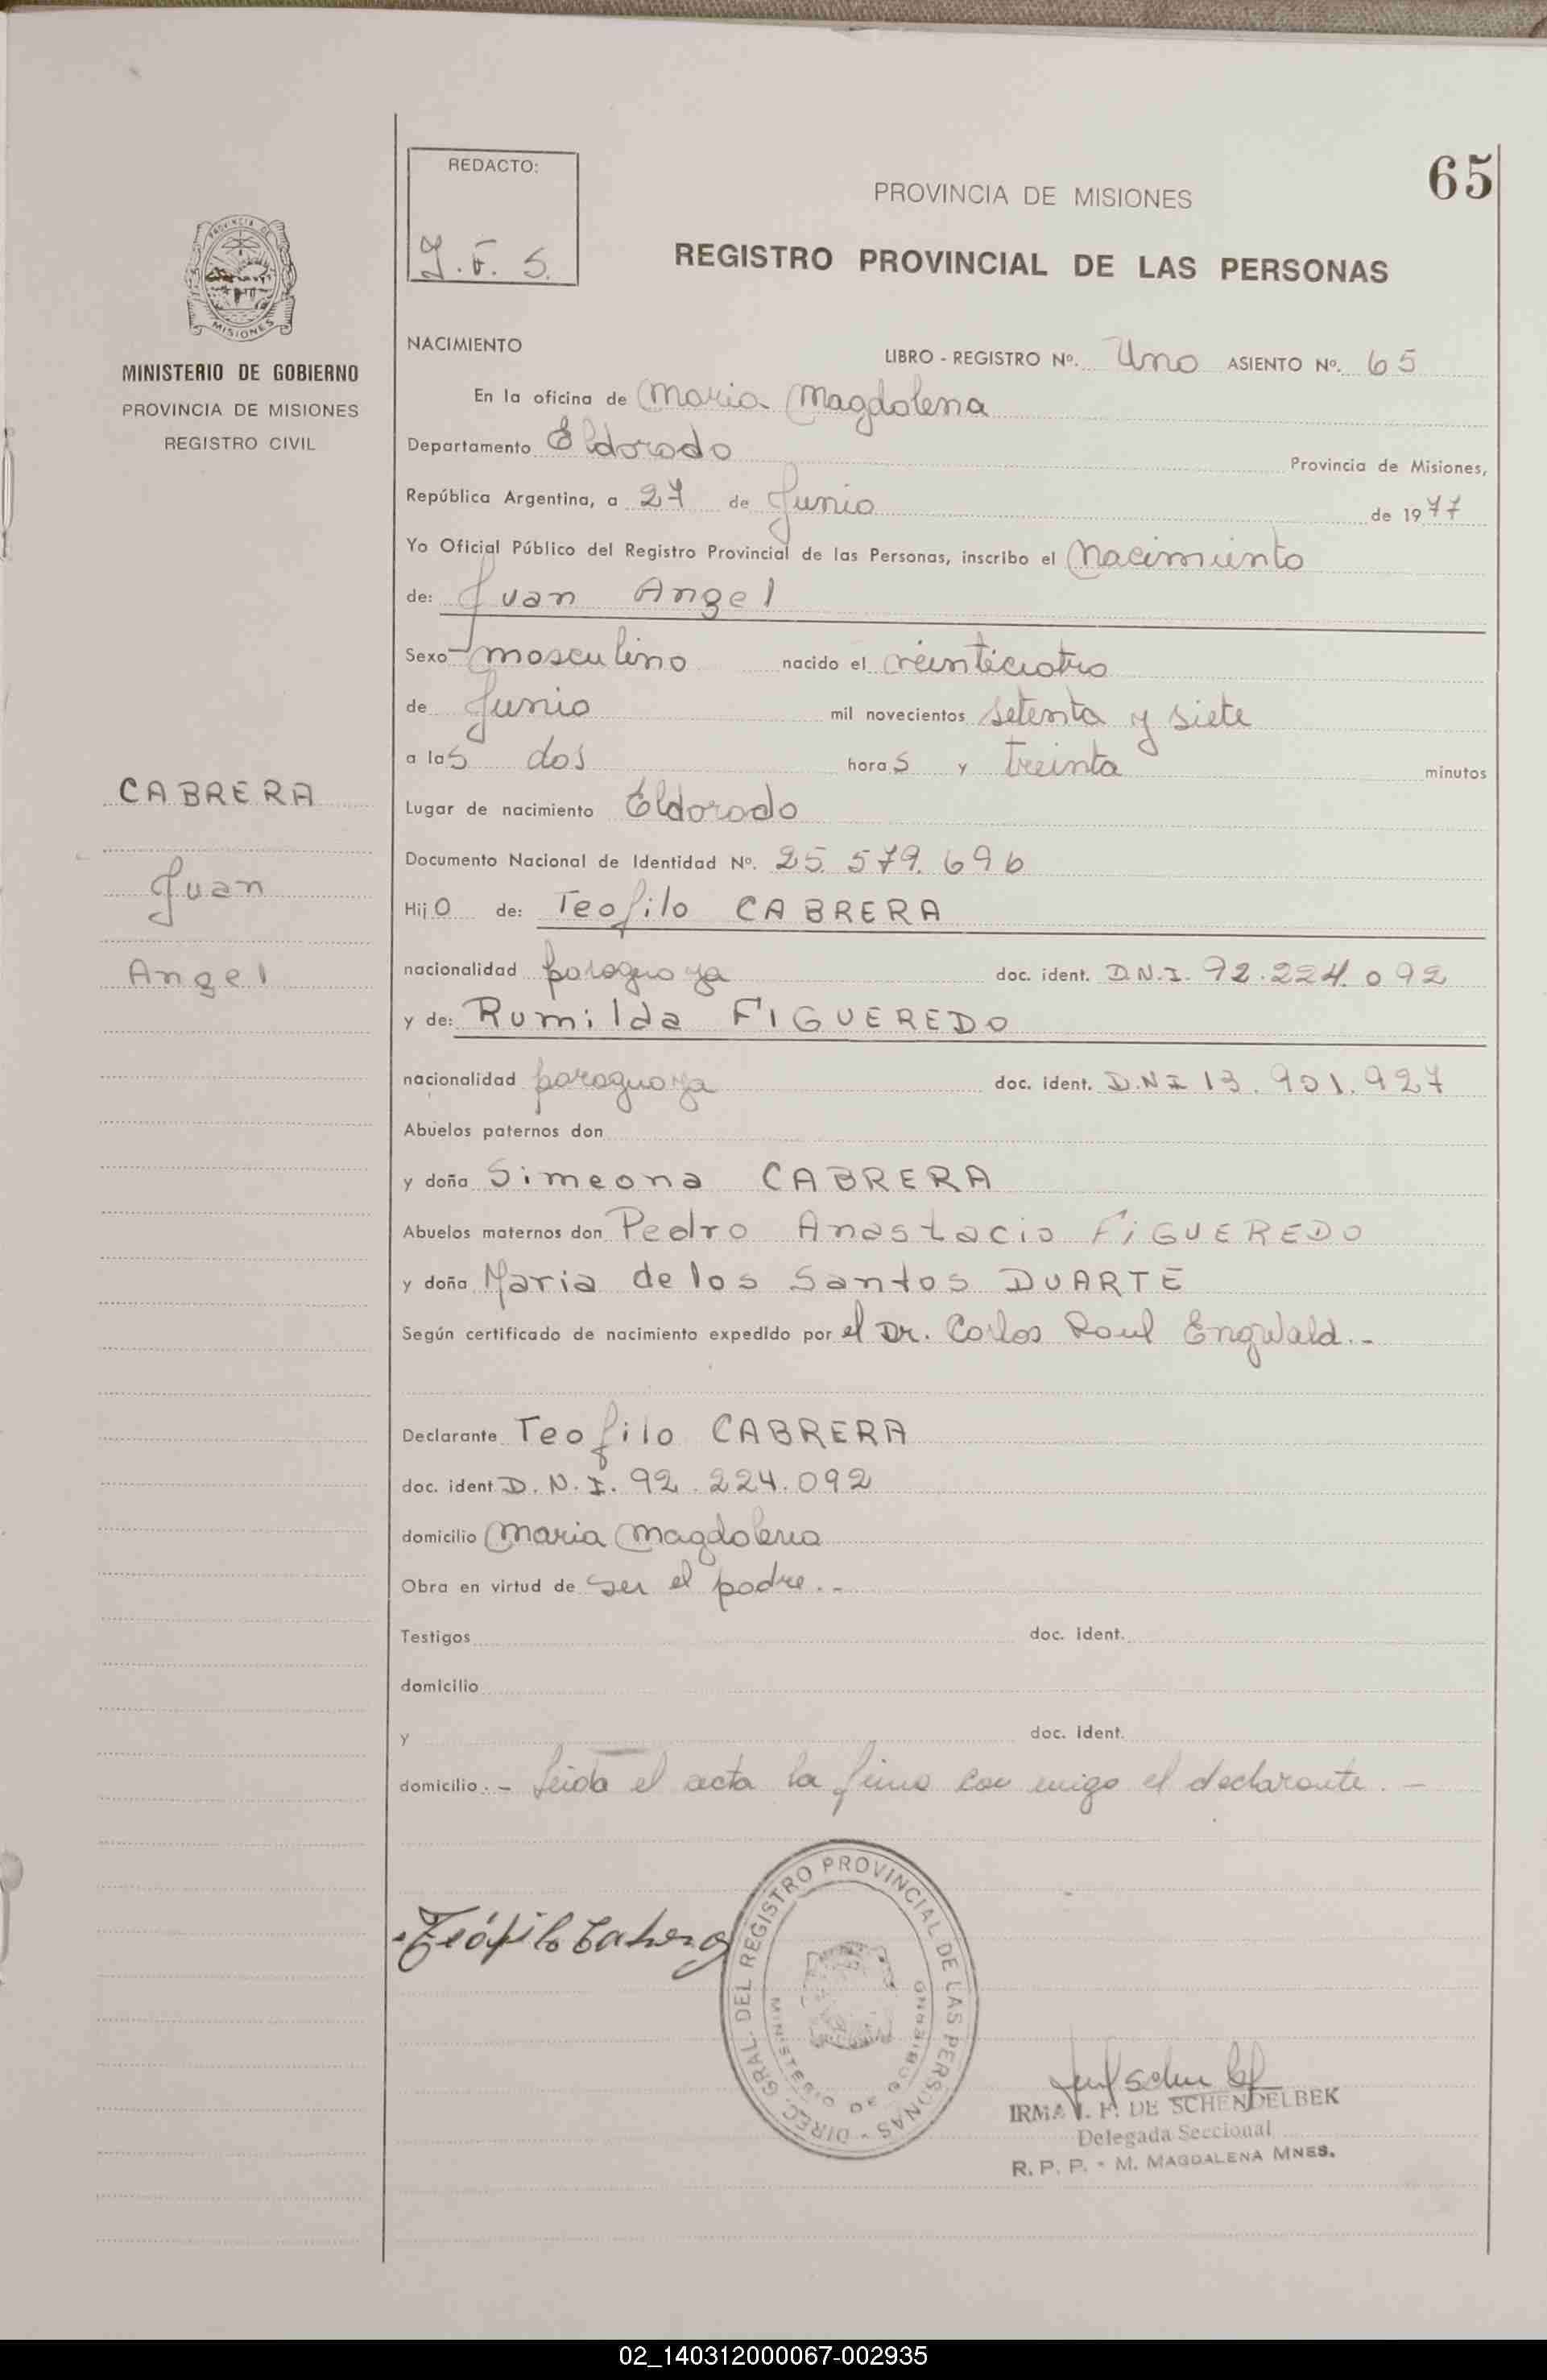 65
REDACTO:
J. F. S.
PROVINCIA DE MISIONES
REGISTRO PROVINCIAL DE LAS PERSONAS
PROVINCIA DE
MISIONES
MINISTERIO DE GOBIERNO
PROVINCIA DE MISIONES
REGISTRO CIVIL
NACIMIENTO
LIBRO - REGISTRO Nº. Uno ASIENTO Nº. 65
En la oficina de Maria Magdalena
Departamento Eldorado Provincia de Misiones,
República Argentina, a 27 de Junio de 1977
Yo Oficial Público del Registro Provincial de las Personas, inscribo el Nacimiento
de: Juan Angel
Sexo masculino nacido el veinticuatro
de Junio mil novecientos setenta y siete
a las dos horas y treinta minutos
CABRERA
Juan
Angel
Lugar de nacimiento Eldorado
Documento Nacional de Identidad Nº. 25.579.696
Hijo de: Teofilo CABRERA
nacionalidad paraguaya doc. ident. D.N.I. 92.224.092
y de: Rumilda FIGUEREDO
nacionalidad paraguaya doc. ident. D.N.I 13.901.927
Abuelos paternos don
y doña Simeona CABRERA
Abuelos maternos don Pedro Anastacio FIGUEREDO
y doña Maria de los Santos DUARTE
Según certificado de nacimiento expedido por el Dr. Carlos Raul Engwald.-
Declarante Teofilo CABRERA
doc. ident D.N.I. 92.224.092
domicilio Maria Magdalena
Obra en virtud de ser el padre.-
Testigos doc. ident.
domicilio
y doc. ident.
domicilio.- Leida el acta la firma con migo el declarante.-
Teófilo Cabrera
DIREC. GRAL. DEL REGISTRO PROVINCIAL DE LAS PERSONAS -
MINISTERIO DE GOBIERNO
IRMA F. DE SCHENDELBEK
Delegada Seccional
R. P. P. - M. MAGDALENA MNES.
02_140312000067-002935